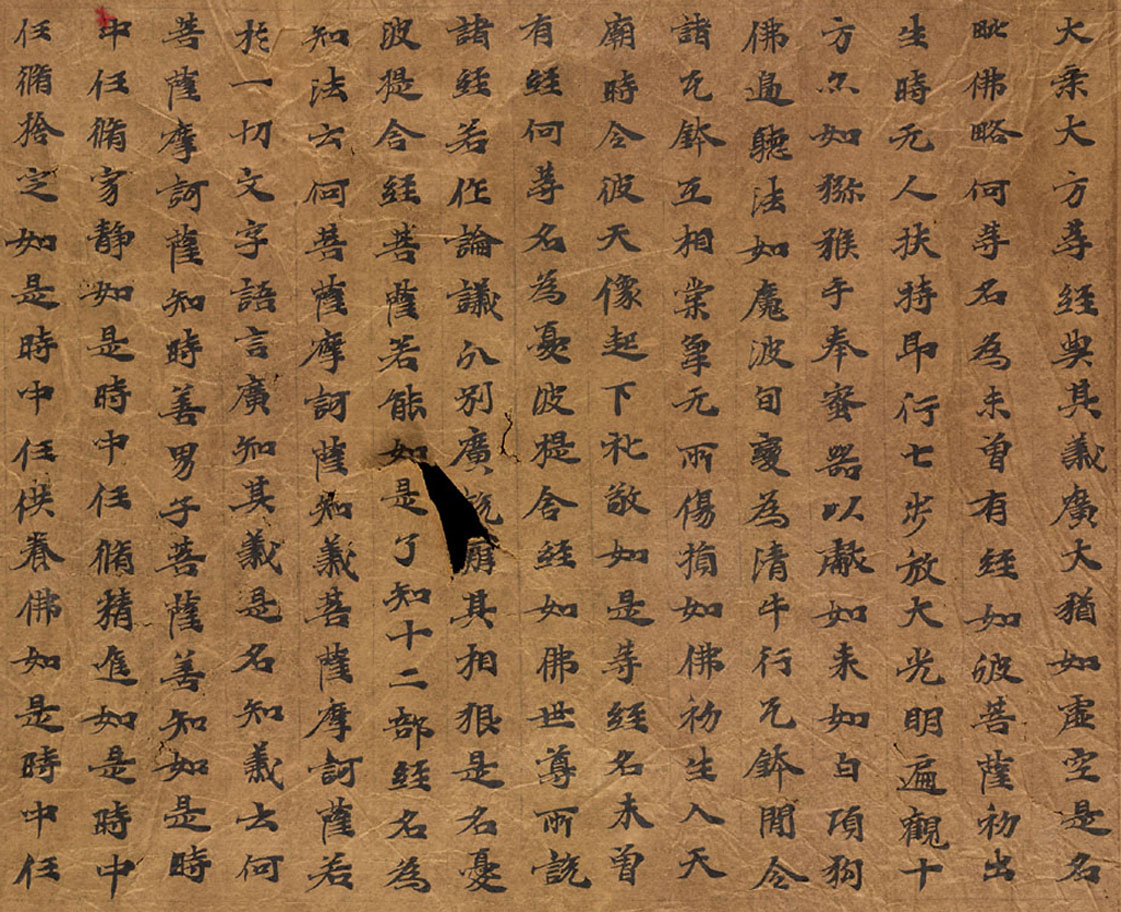 大乗大方等經典其義廣大猶如虛空是名
毗佛略何等名為未曾有經如彼菩薩初出
生時无人扶持即行七步放大光明遍觀十
方亦如猕猴手奉蜜器以獻如来如白項狗
佛邊聽法如魔波旬變為清牛行瓦鉢間令
諸瓦鉢互相棠无所傷損如佛初生入天
廟時令彼天像起下礼敬如是等經名未曾
有經何等名為憂波提舍經如佛世尊所說
諸經若作論議分別廣說其相貌是名憂
波提舍經菩薩若能如是了知十二部經名為
知法云何菩薩摩訶薩知義菩薩摩訶薩若
於一切文字語言廣知其義是名知義云何
菩薩摩訶薩知時善男子菩薩善知如是時
中任脩家静如是時中任脩精進如是時中
任脩捨定如是時中任供養佛如是時中任